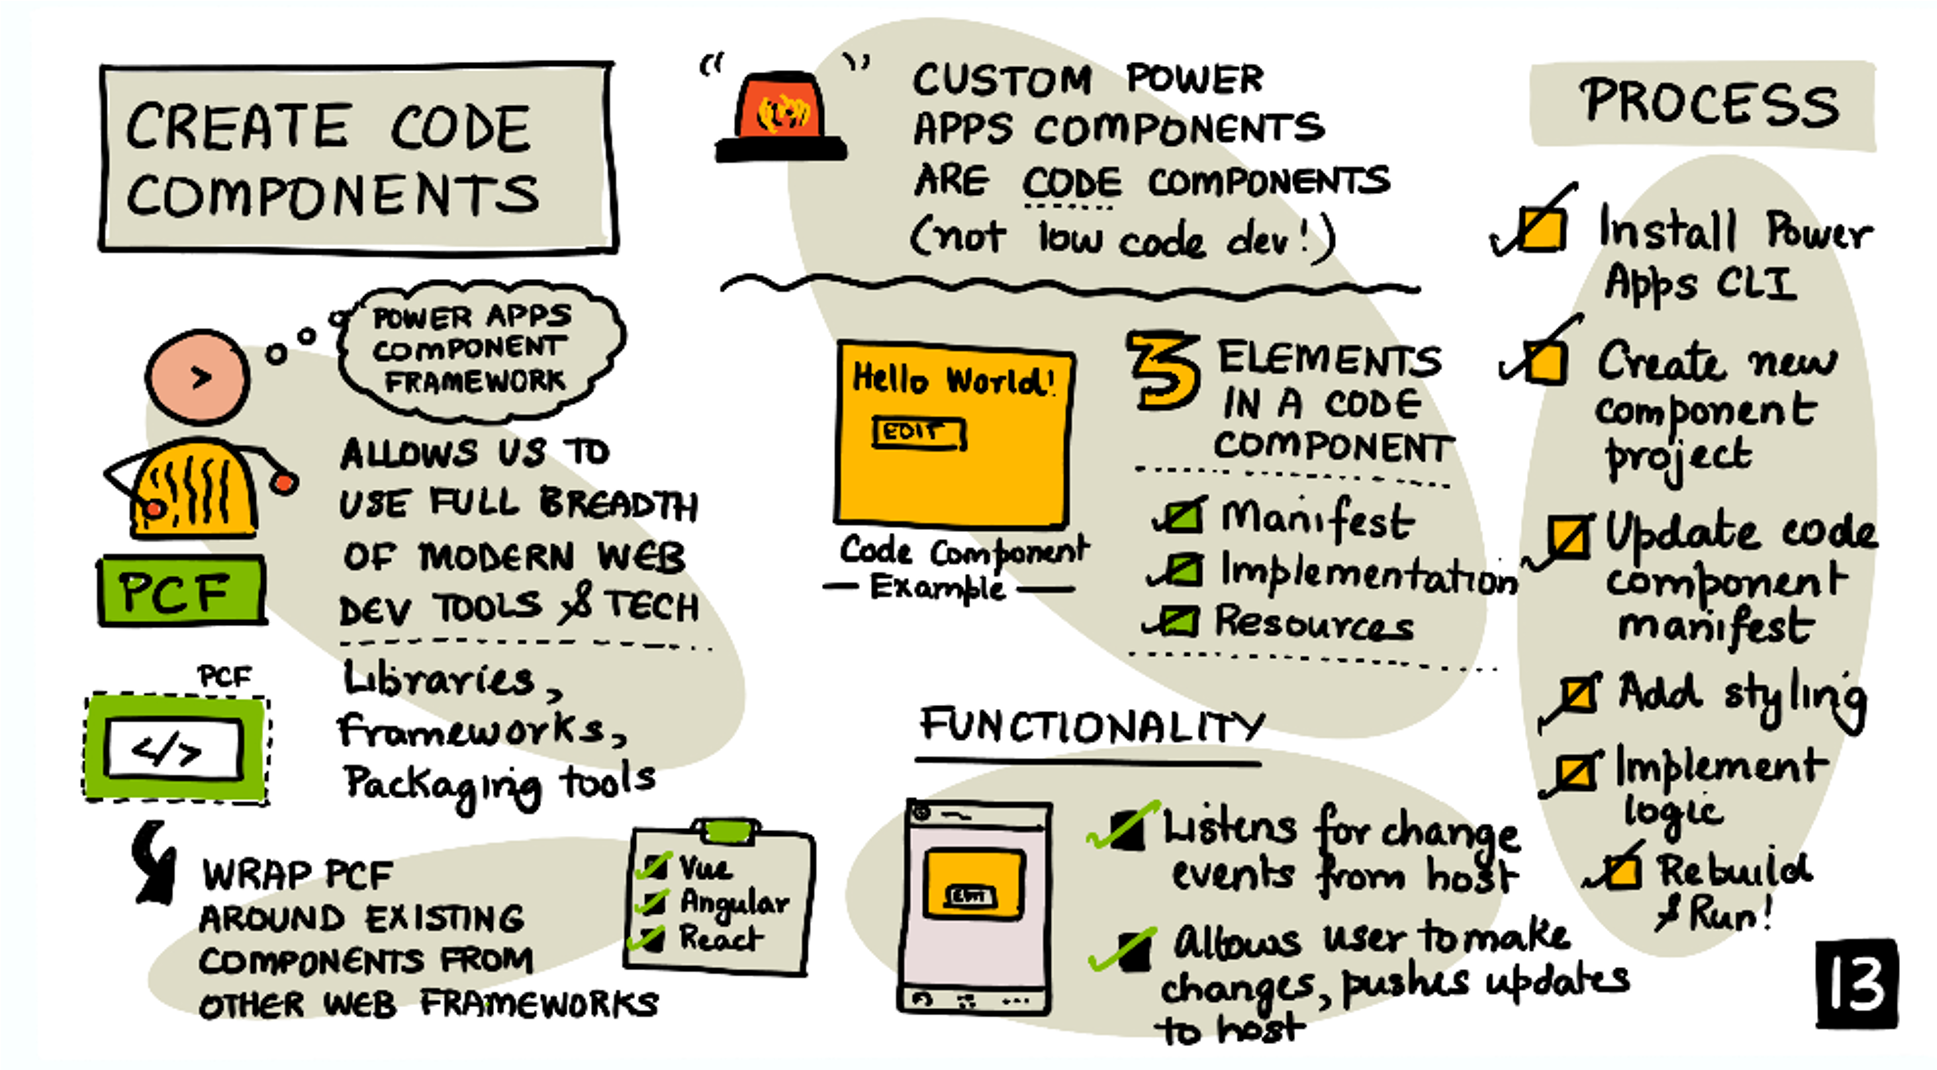 CREATE CODE
COMPONENTS
POWER APPS
COMPONENT
FRAMEWORK
ALLOWS US TO
USE FULL BREADTH
OF MODERN WEB
DEV TOOLS & TECH
PCF
Libraries,
frameworks,
Packaging tools
PCF
</>
WRAP PCF
AROUND EXISTING
COMPONENTS FROM
OTHER WEB FRAMEWORKS
Vue
Angular
React
CUSTOM POWER
APPS COMPONENTS
ARE CODE COMPONENTS
(not low code dev!)
Hello World!
EDIT
Code Component
Example
3 ELEMENTS
IN A CODE
COMPONENT
Manifest
Implementation
Resources
FUNCTIONALITY
EDIT
Listens for change
events from host
Allows user to make
changes, pushes updates
to host
PROCESS
Install Power
Apps CLI
Create new
component
project
Update code
component
manifest
Add styling
Implement
logic
Rebuild
& Run!
13